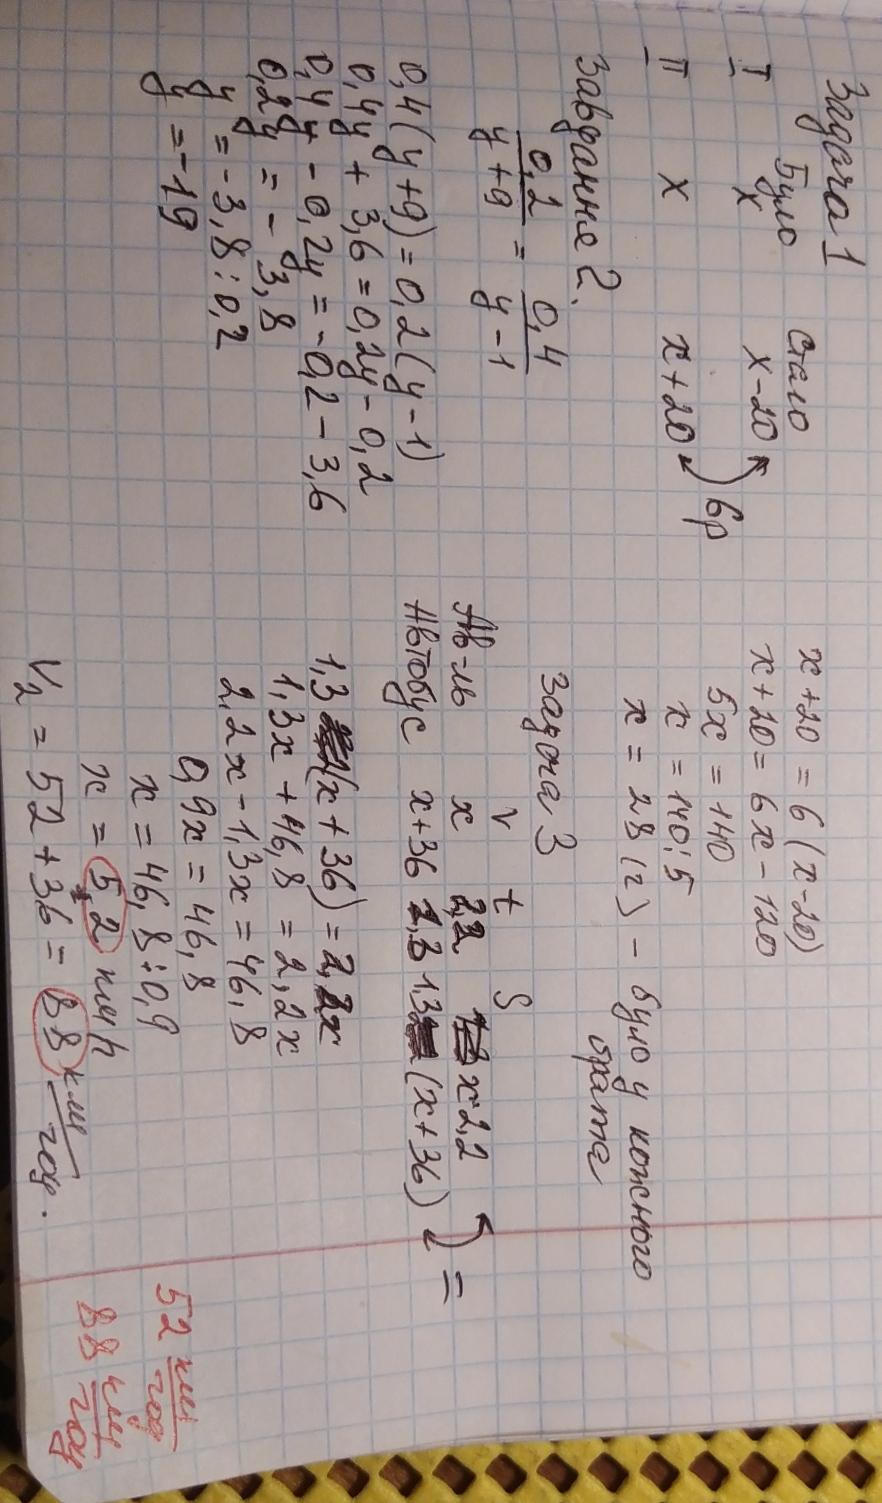 Задача 1
Було стало
I х х-20
II х х+20 6р
х+20 = 6(х-20)
х+20 = 6х-120
5х = 140
х = 140:5
х = 28 (г) – було у кожного
брата
Завдання 2.
0,2/у+9 = 0,4/у-1
0,4(у+9)=0,2(у-1)
0,4у + 3,6 = 0,2у-0,2
0,4у - 0,2у = -0,2 - 3,6
0,2у = - 3,8
у = -3,8:0,2
у = -19
Задача 3
v t S
Ав-ль х 2,2 х·2,2
Автобус х+36 1,3 1,3 (х+36) =
1,3 (х+36) = 2,2х
1,3х + 46,8 = 2,2х
2,2х - 1,3х = 46,8
0,9х = 46,8
х = 46,8:0,9
х = 5,2 км/г
V2 = 52+36 = 88 км/год.
52 км/год
88 км/год